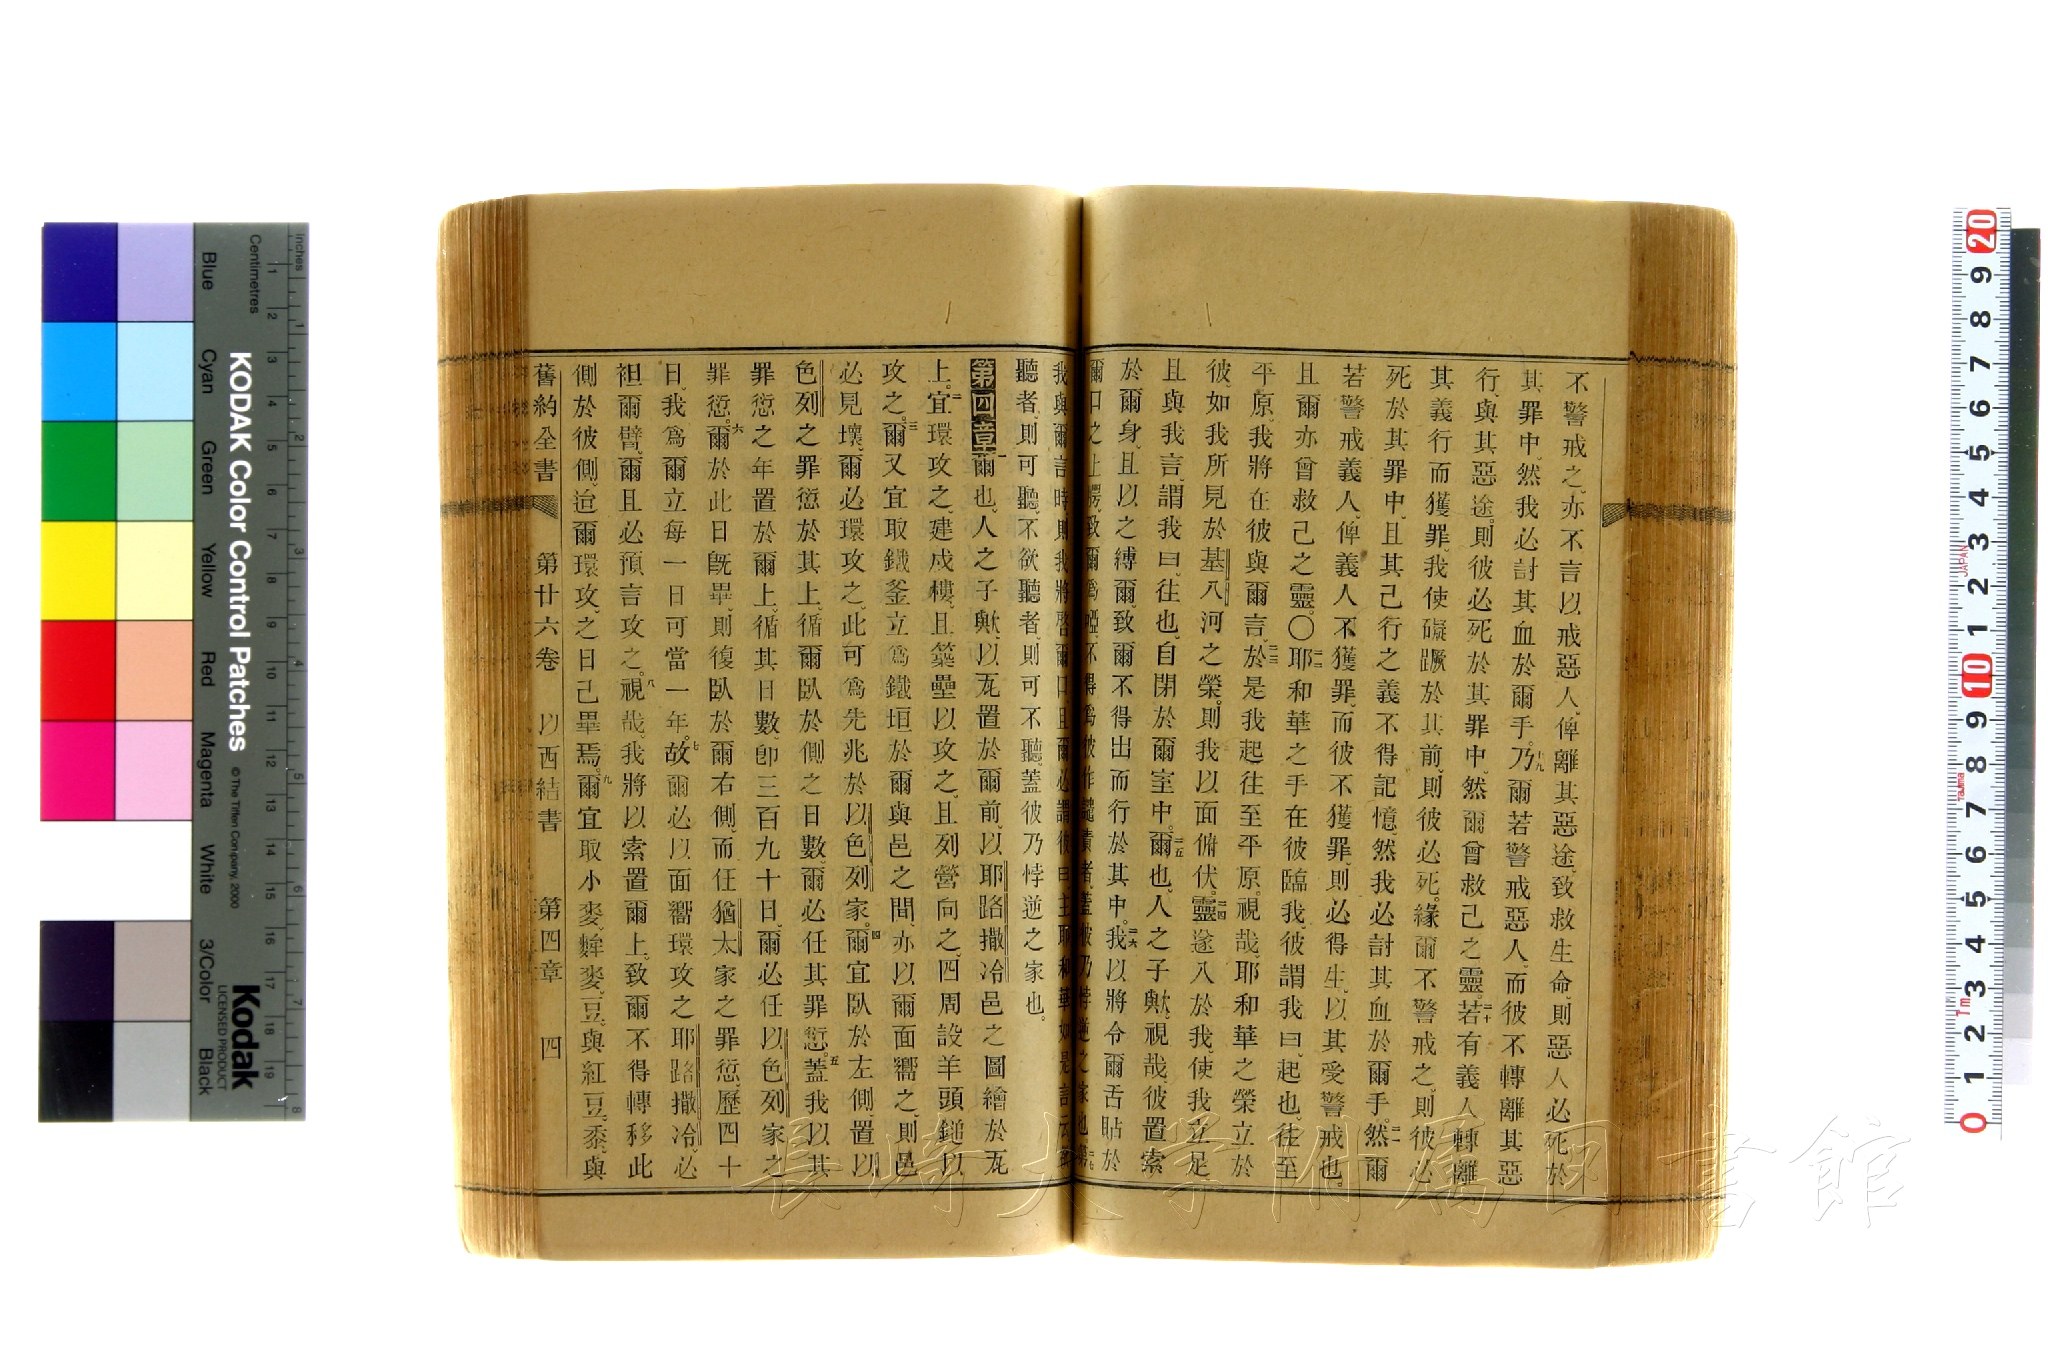 不警戒之、亦不言以戒惡人、俾離其惡途、致救生命、則惡人必死於
其罪中、然我必討其血於爾手。十九乃爾若警戒惡人、而彼不轉離其惡
行、與其惡途、則彼必死於其罪中、然爾曾救己之靈。二十若有義人轉離
其義行而獲罪、我使礙蹶於其前、則彼必死。緣爾不警戒之、則彼必
死於其罪中、且其己行之義不得記憶、然我必討其血於爾手。二一然爾
若警戒義人、俾義人不獲罪、而彼不獲罪、則必得生、以其受警戒也。
且爾亦曾救己之靈。〇二二耶和華之手在彼臨我、彼謂我曰、起也、往至
平原、我將在彼與爾言。二三於是我起往至平原。視哉、耶和華之榮立於
彼、如我所見於基八河之榮、則我以面俯伏。二四靈遂入於我、使我立足
且與我言、謂我曰、往也、自閉於爾室中。二五爾也、人之子歟、視哉、彼置索
於爾身、且以之縛爾、致爾不得出而行於其中。二六我以將令爾舌貼於
爾口之上腭、致爾爲啞、不得爲彼作譴責者、蓋彼乃悖逆之家也。
我與爾言時、則我將啓爾口、且爾必謂彼曰、主耶和華如是言云、
聽者、則可聽、不欲聽者、則可不聽、蓋彼乃悖逆之家也。
第四章 一爾也、人之子歟、以瓦置於爾前、以耶路撒冷邑之圖繪於瓦
上。二宜環攻之、建成樓、且築壘以攻之、且列營向之、四周設羊頭鎚以
攻之。三爾又宜取鐵釜立爲鐵垣於爾與邑之間、亦以爾面嚮之、則邑
必見壞、爾必環攻之、此可爲先兆於以色列家。四爾宜臥於左側、置以
色列之罪愆於其上、循爾臥於側之日數、爾必任其罪愆。五蓋我以其
罪愆之年置於爾上、循其日數、卽三百九十日、爾必任以色列家之
罪愆。六爾於此日旣畢、則復臥於爾右側、而任猶太家之罪愆、歷四十
日、我爲爾立每一日可當一年。七故爾必以面嚮環攻之耶路撒冷、必
袒爾臂、爾且必預言攻之。八視哉、我將以索置爾上、致爾不得轉移此
側於彼側、迨爾環攻之日己畢焉。九爾宜取小麥、䴰麥、豆、與紅豆、黍、與
舊約全書 第廿六卷 以西結書 第四章 四
KODAK Color Control Patches
© The Tiffen Company, 2000
Kodak
LICENSED PRODUCT
Inches
Centimetres
Blue
Cyan
Green
Yellow
Red
Magenta
White
3/Color
Black
長崎大学附属図書館